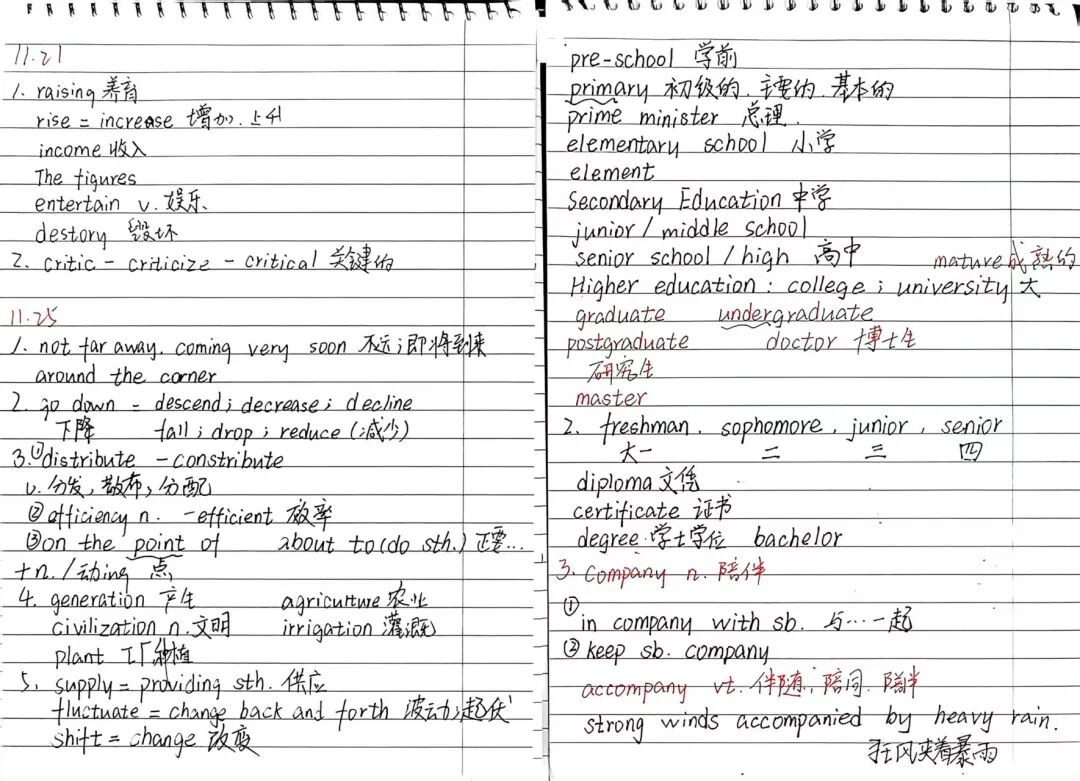 11.21
1. raising 养育
rise = increase 增加.上升
income 收入
The figures
entertain v. 娱乐
destory 毁坏
2. critic - criticize - critical 关键的
11.25
1. not far away. coming very soon 不远;即将到来
around the corner
2. go down = descend; decrease; decline
下降 fall; drop; reduce (减少)
3.①distribute - constribute
v.分发,散布,分配
②efficiency n. -efficient 效率
③on the point of about to (do sth.) 正要...
+n./动ing 点
4. generation 产生 agriculture 农业
civilization n.文明 irrigation 灌溉
plant 工厂种植
5. supply = providing sth. 供应
fluctuate = change back and forth 波动;起伏
shift = change 改变
pre-school 学前
primary 初级的.主要的.基本的
prime minister 总理.
elementary school 小学
element
Secondary Education 中学
junior / middle school
senior school / high 高中 mature 成熟的
Higher education : college ; university 大
graduate undergraduate
postgraduate doctor 博士生
研究生
master
2. freshman. sophomore, junior, senior
大一 二 三 四
diploma 文凭
certificate 证书
degree 学士学位 bachelor
3. company n. 陪伴
①
in company with sb. 与...一起
②keep sb. company
accompany vt. 伴随,陪同.陪伴
strong winds accompanied by heavy rain.
狂风夹着暴雨